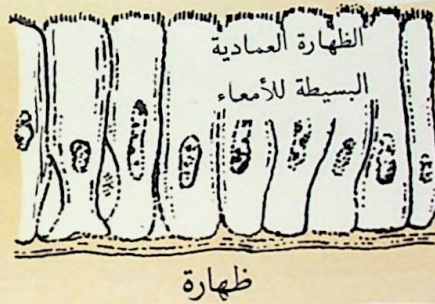 الظهارة العمادية
البسيطة للأمعاء
ظهارة